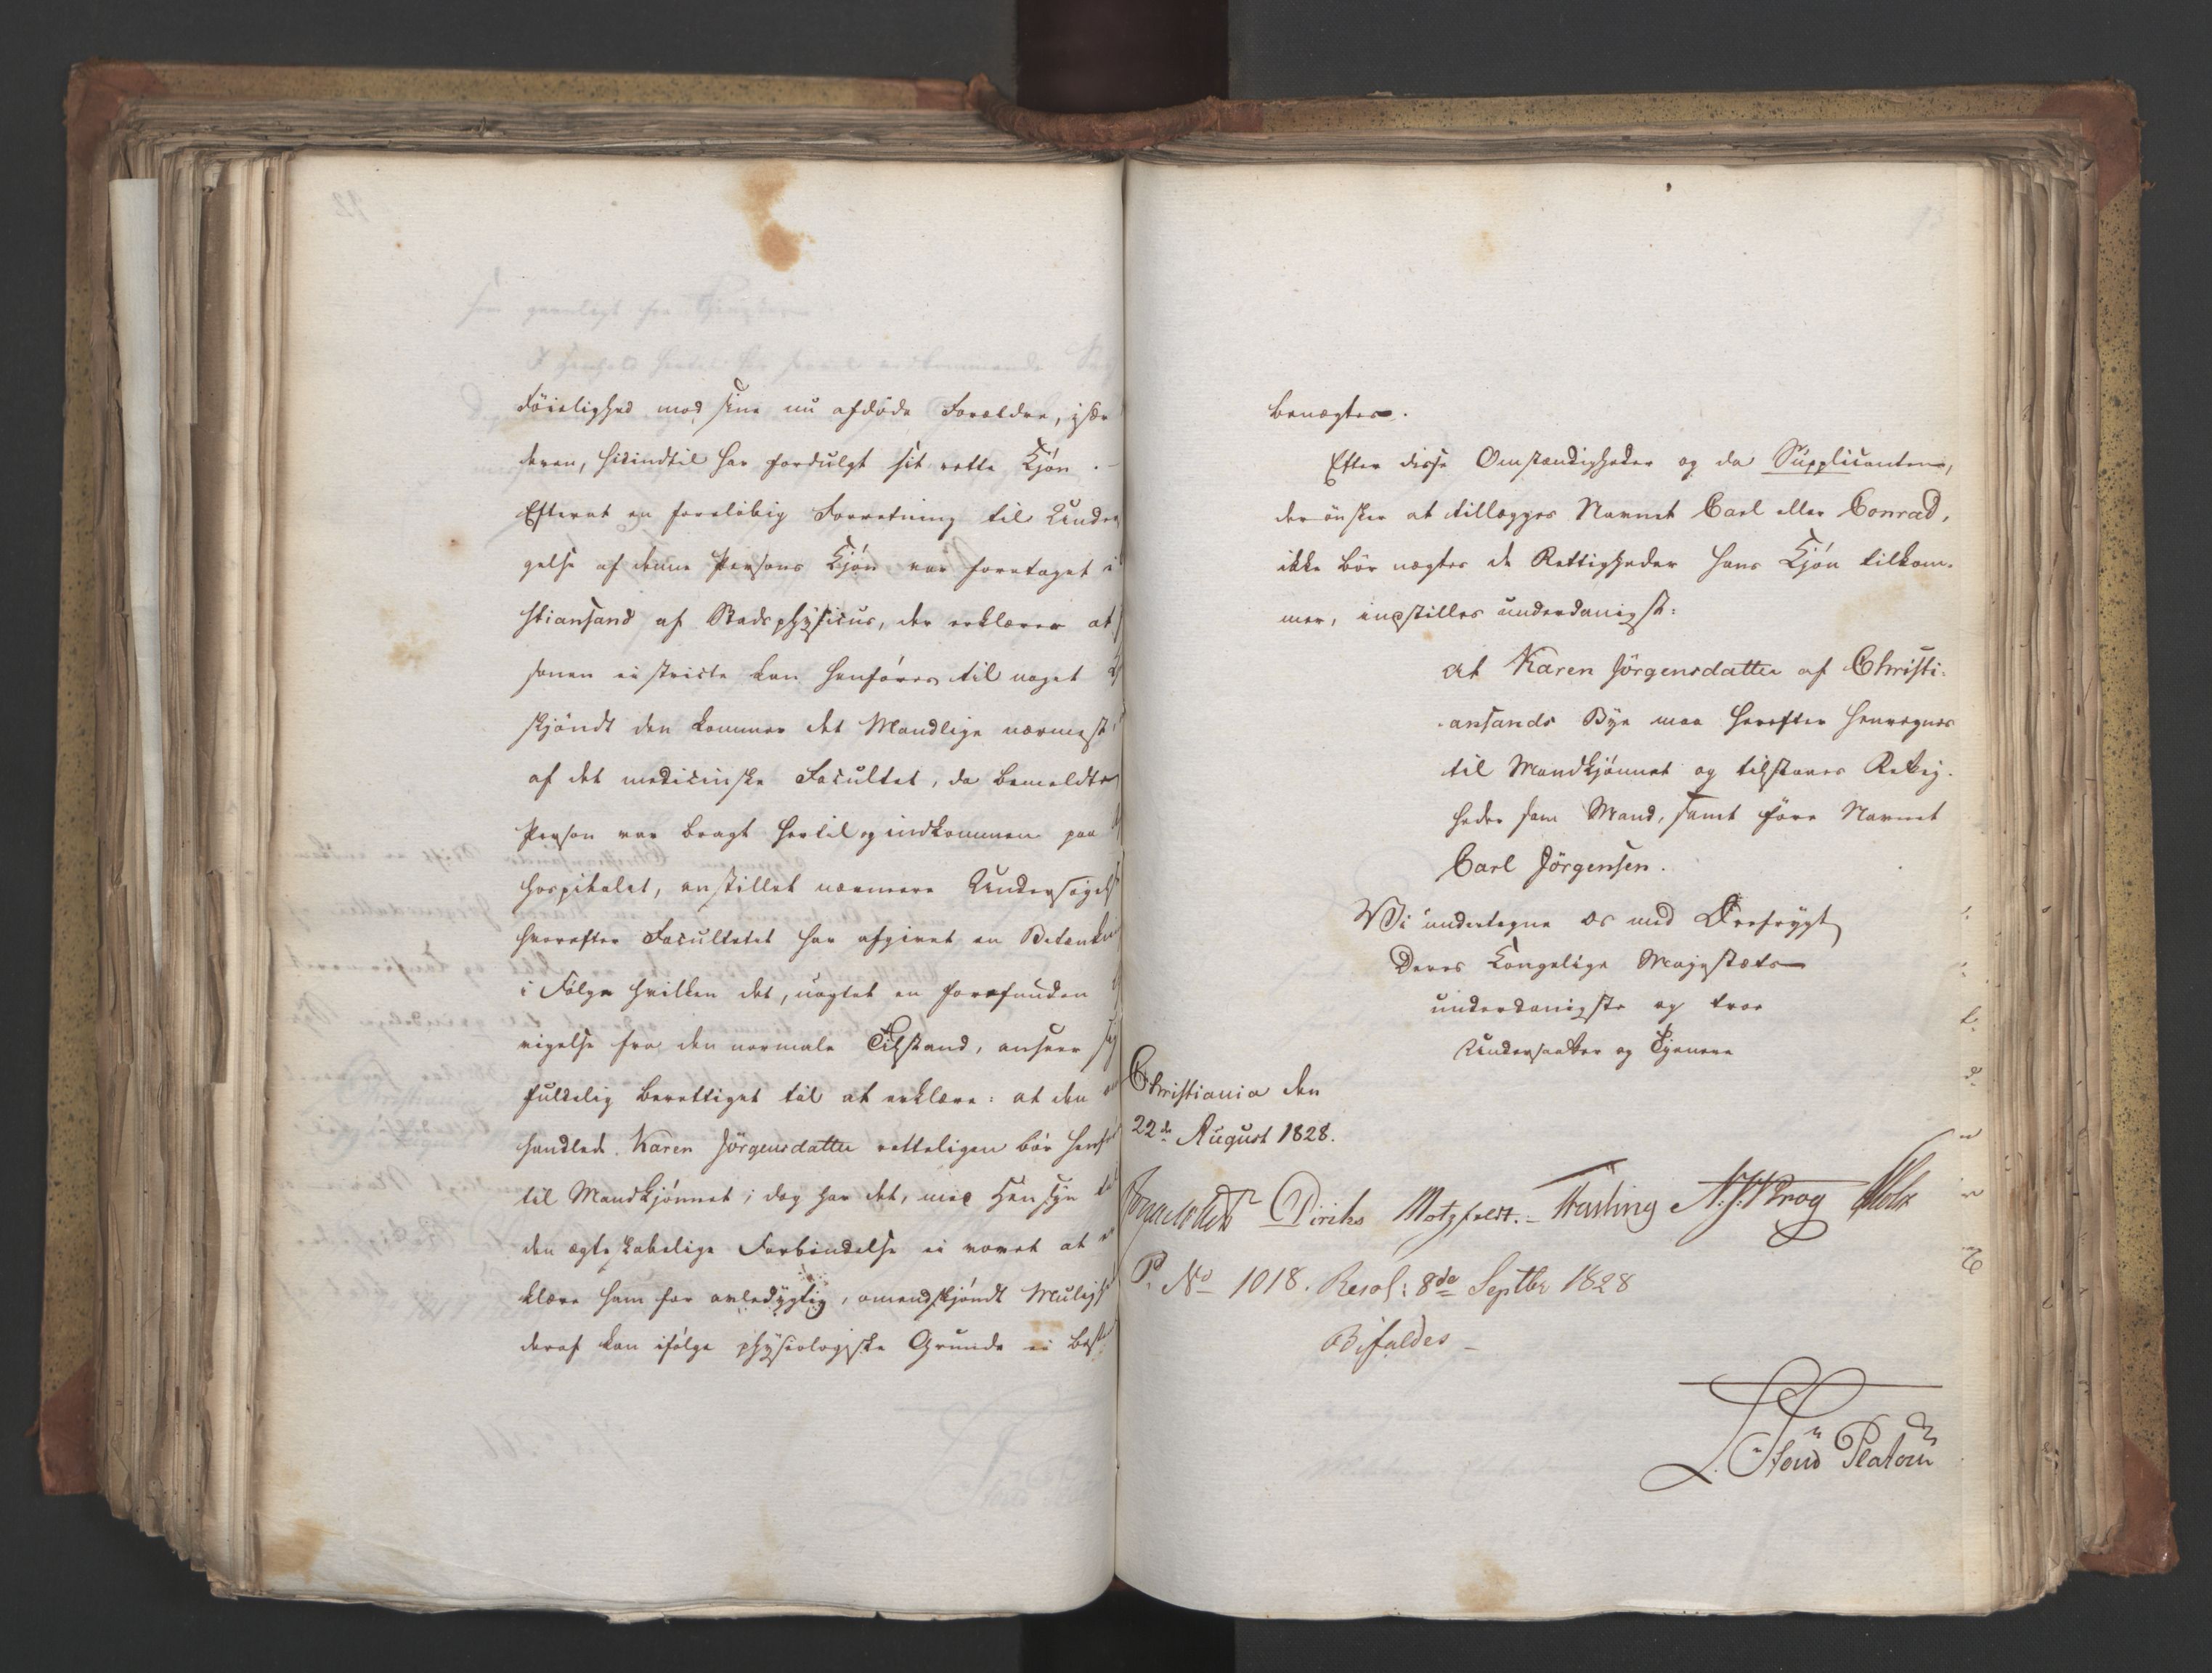 Föielighed mod sine nu afdöde Forældre, især
deren, hidindtil har fordulgt sit rette Kjön.
Efterat en foreløbig Forretning til Under
gelse af denne Persons Kjön var foretaget i
stiansand af Stadsphysicus, der erklærer at
sonen ei stricte kan henføres til noget
skjöndt den kommer det Mandlige nærmest,
af det medicinske Facultet, da bemeldte
Person var bragt hertil og indkommen paa
Hospitalet, anstillet nærmere Undersögelse
hvorefter Facultetet har afgivet en Betænkn
i Følge hvilken det, uagtet en forefunden
vigelse fra den normale Tilstand, anseer sig
fuldelig berettiget til at erklære: at den
handlede Karen Jörgensdatter retteligen bör henf
til Mandkjönnet; dog har det, med Hensyn til
den ægteskabelige Forbindelse ei vovet at
klære ham for avledygtig, omendskjöndt Muligh
deraf kan ifølge physiologiske Grunde ei best
benægtes.
Efter disse Omstændigheder og da Supplicanten,
der önsker at tillægges Navnet Carl eller Conrad,
ikke bör nægtes de Rettigheder hans Kjön tilkom-
mer, indstilles underdanigst:
at Karen Jörgensdatter af Christi-
ansands Bye maa herefter henregnes
til Mandkjönnet og tilstaaes Rettig-
heder som Mand, samt føre Navnet
Carl Jörgensen.
Vi undertegne os med Ærefrygt
Deres Kongelige Majestæts
underdanigste og troe
Undersaatter og Tjenere
Christiania den
22de August 1828.
Diriks Motzfeldt. Fasting N. J. Krog Holst
P. No 1018. Resol: 8de Septbr 1828
Bifaldes
L. Stoud Platou